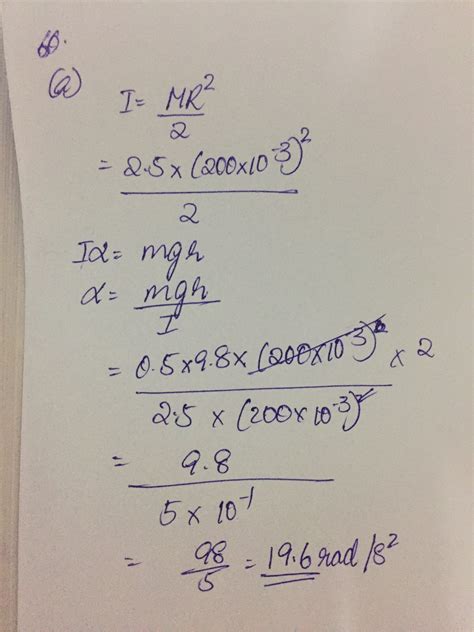 60.
(a)
I = MR²/2
= 2.5 × (200×10⁻³)²/2
Iα = mgr
α = mgr/I
= 0.5×9.8×(200×10⁻³)/2.5 × (200×10⁻³)² × 2
= 9.8/5 × 10⁻¹
= 98/5 = 19.6 rad/s²